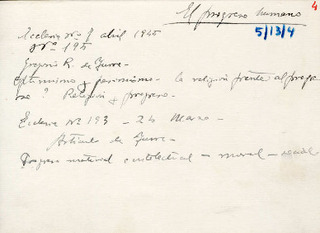 El progreso humano
4
5/13/4
Ecclesia Nº 8 abril 1945
Nº 195
Gregorio R. de Yurre -
Optimismo y pesimismo - la religión frente al progre
so? Religión y progreso -
Ecclesia Nº 193 - 24 Marzo -
Artículo de Yurre -
Progreso material intelectual - moral - social